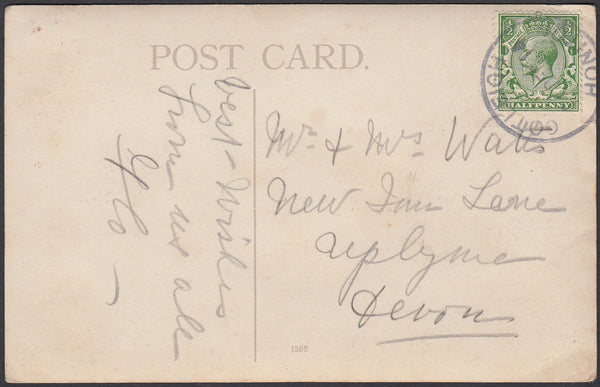 POST CARD.
best wishes
from us all
Flo -
Mr & Mrs Watts
New Inn Lane
Uplyme
Devon
½ ½
HALFPENNY
1300